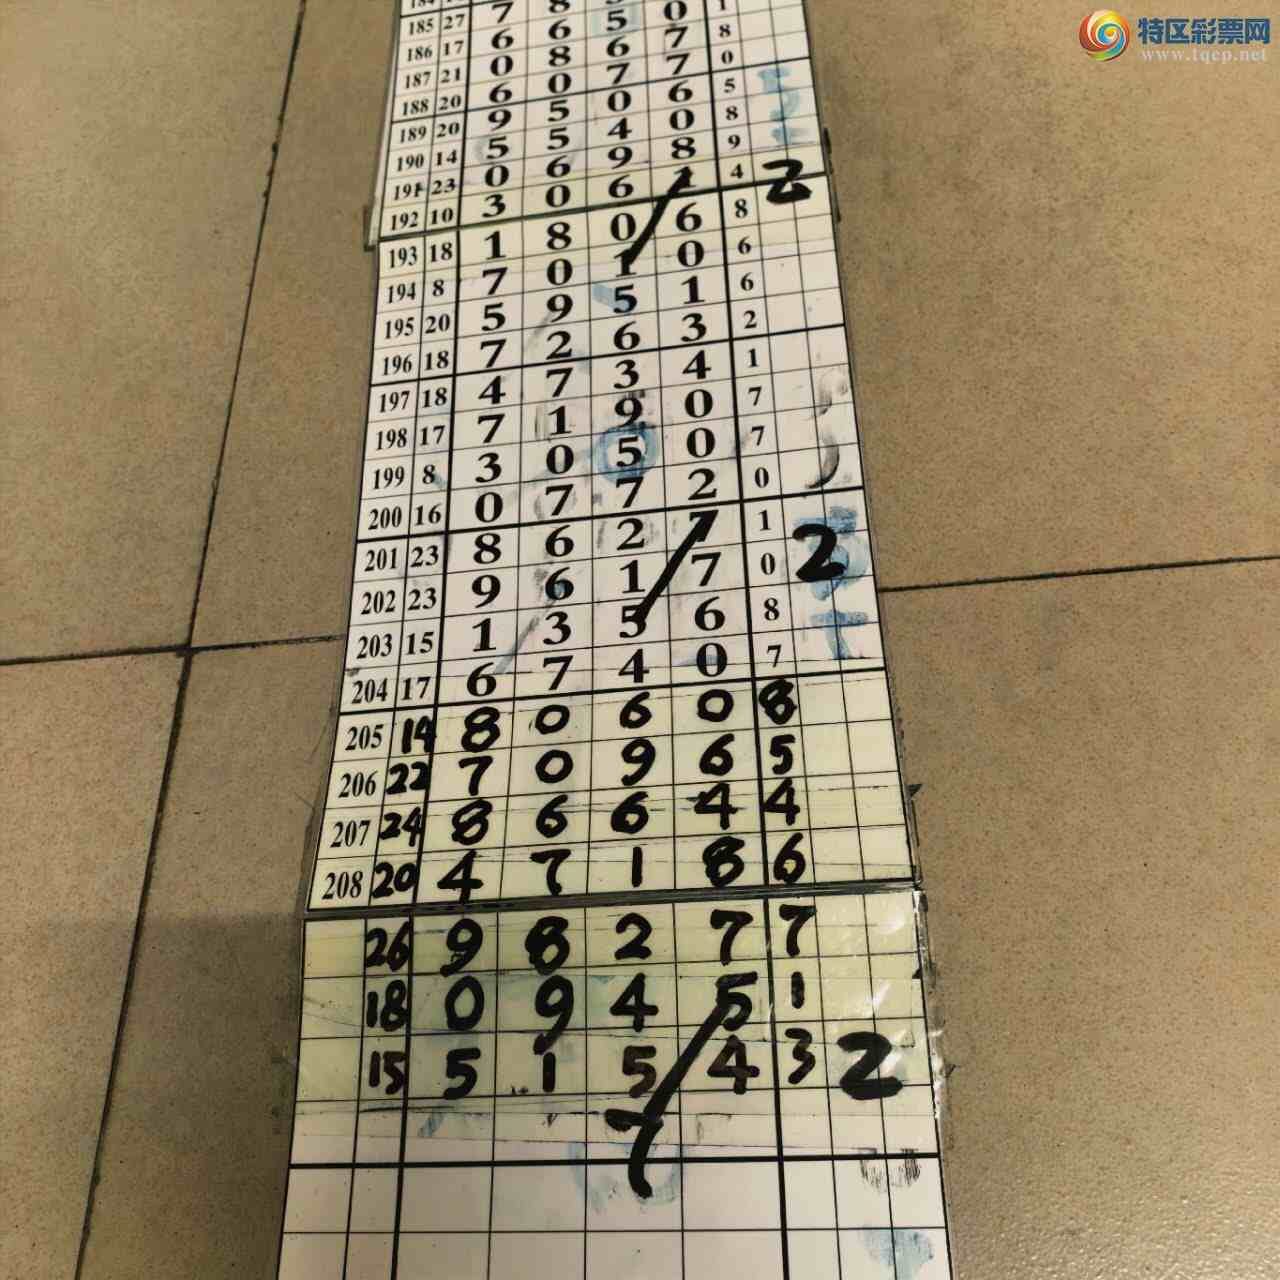 特区彩票网
www.tqcp.net
185 27 7 8
186 17 6 6 5 0 1
187 21 0 8 6 7 8
188 20 6 0 7 7 0
189 20 9 5 0 6 5
190 14 5 5 4 0 8
191 23 0 6 9 8 9
192 10 3 0 6 1 4 2
193 18 1 8 0 6 8
194 8 7 0 1 0 6
195 20 5 9 5 1 6
196 18 7 2 6 3 2
197 18 4 7 3 4 1
198 17 7 1 9 0 7
199 8 3 0 5 0 7
200 16 0 7 7 2 0
201 23 8 6 2 7 1
202 23 9 6 1 7 0 2
203 15 1 3 5 6 8
204 17 6 7 4 0 7
205 14 8 0 6 0 8
206 22 7 0 9 6 5
207 24 8 6 6 4 4
208 20 4 7 1 8 6
26 9 8 2 7 7
18 0 9 4 5 1
15 5 1 5 4 3 2
7